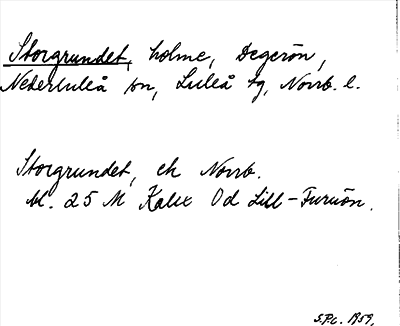 Storgrundet, holme, Degerön,
Nederluleå sn, Luleå tg, Norrb. l.
Storgrundet, ek Norrb.
bl. 25 M Kalix Od Lill-Furuön.
S.Pc. 1959.